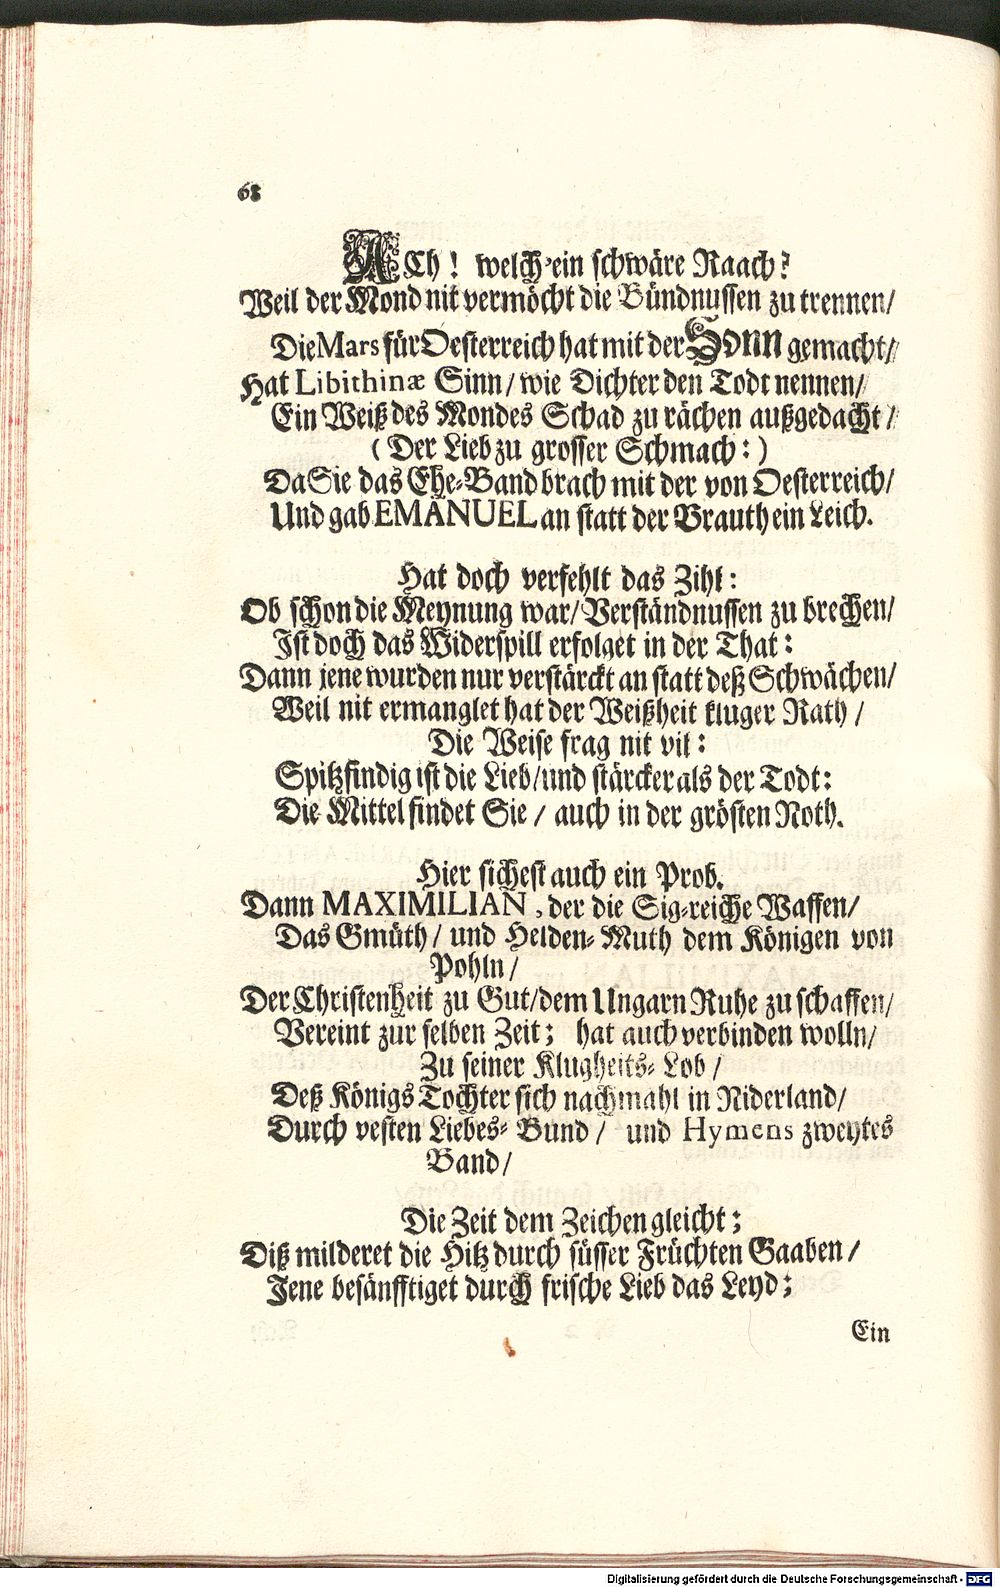 68
ACh! welch ein schwäre Raach?
Weil der Mond nit vermöcht die Bündnussen zu trennen/
Die Mars für Oesterreich hat mit der Sonn gemacht/
Hat Libithinæ Sinn/ wie Dichter den Todt nennen/
Ein Weiß des Mondes Schad zu rächen außgedacht/
(Der Lieb zu grosser Schmach:)
Da Sie das Ehe-Band brach mit der von Oesterreich/
Und gab EMANUEL an statt der Brauth ein Leich.
Hat doch verfehlt das Zihl:
Ob schon die Meynung war/ Verständnussen zu brechen/
Ist doch das Widerspill erfolget in der That:
Dann jene wurden nur verstärckt an statt deß Schwächen/
Weil nit ermanglet hat der Weißheit kluger Rath/
Die Weise frag nit vil:
Spitzfindig ist die Lieb/ und stärcker als der Todt:
Die Mittel findet Sie/ auch in der grösten Noth.
Hier sichest auch ein Prob.
Dann MAXIMILIAN, der die Sig-reiche Waffen/
Das Gmüth/ und Helden-Muth dem Königen von
Pohln/
Der Christenheit zu Gut/ dem Ungarn Ruhe zu schaffen/
Vereint zur selben Zeit; hat auch verbinden wolln/
Zu seiner Klugheits-Lob/
Deß Königs Tochter sich nachmahl in Niderland/
Durch vesten Liebes-Bund/ und Hymens zweytes
Band/
Die Zeit dem Zeichen gleicht;
Diß milderet die Hitz durch süsser Früchten Gaaben/
Jene besänfftiget durch frische Lieb das Leyd;
Ein
Digitalisierung gefördert durch die Deutsche Forschungsgemeinschaft - DFG